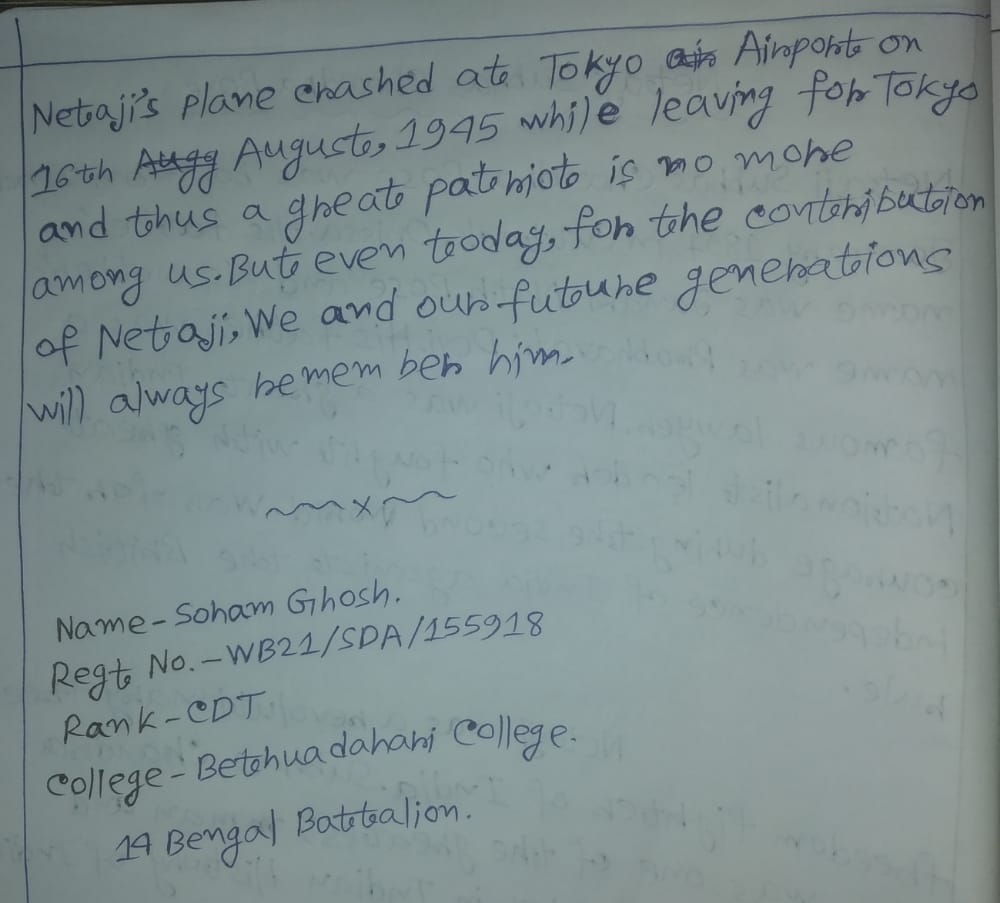 Netaji's plane crashed at Tokyo air Airport on
16th Augg August, 1945 while leaving for Tokyo
and thus a great patriot is no more
among us. But even today, for the contribution
of Netaji, We and our future generations
will always remem ber him.
~~x~~
Name - Soham Ghosh.
Regt No. - WB21/SDA/155918
Rank - CDT
College - Bethuadahari College.
14 Bengal Battalion.